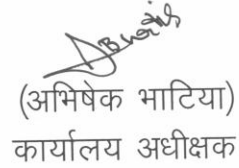 (अभिषेक भाटिया)
कार्यालय अधीक्षक